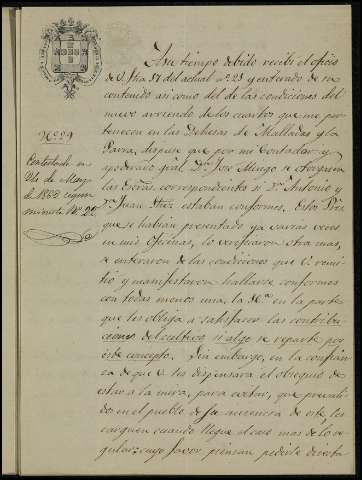 A su tiempo debido recibí el oficio
de V. fha 17 del actual nº 23 y enterado de su
contenido asi como del de las condiciones del
nuevo arriendo de los cuartos que me per-
tenecen en las Dehesas de Malladas y la
Parra, dispuse que por mi Contador y
apoderado gral. Dn. José se otorgasen
las Escrās correspondientes si Dn. Antonio y
Dn. Juan estaban conformes. Estos Sres
que se habian presentado ya varias veces
en mis Oficinas, lo verificaron otra mas,
se enteraron de las condiciones que V. remi-
tió y manifestaron hallarse conformes
con todas menos una, la 10ª en la parte
que les obliga a satisfacer las contribu-
ciones del cultivo si algo se reparte por
este concepto. Sin embargo, en la confian-
za de que V. les dispensará el obsequio de
estar a la mira, para evitar, que prevali-
dos en el pueblo de su ausencia de este les
carguen cuando llegue el caso mas de lo re-
gular: cuyo favor piensan pedirle directa
Nº 29
Contestado en
de
de 1853 segun
minuta Nº 21